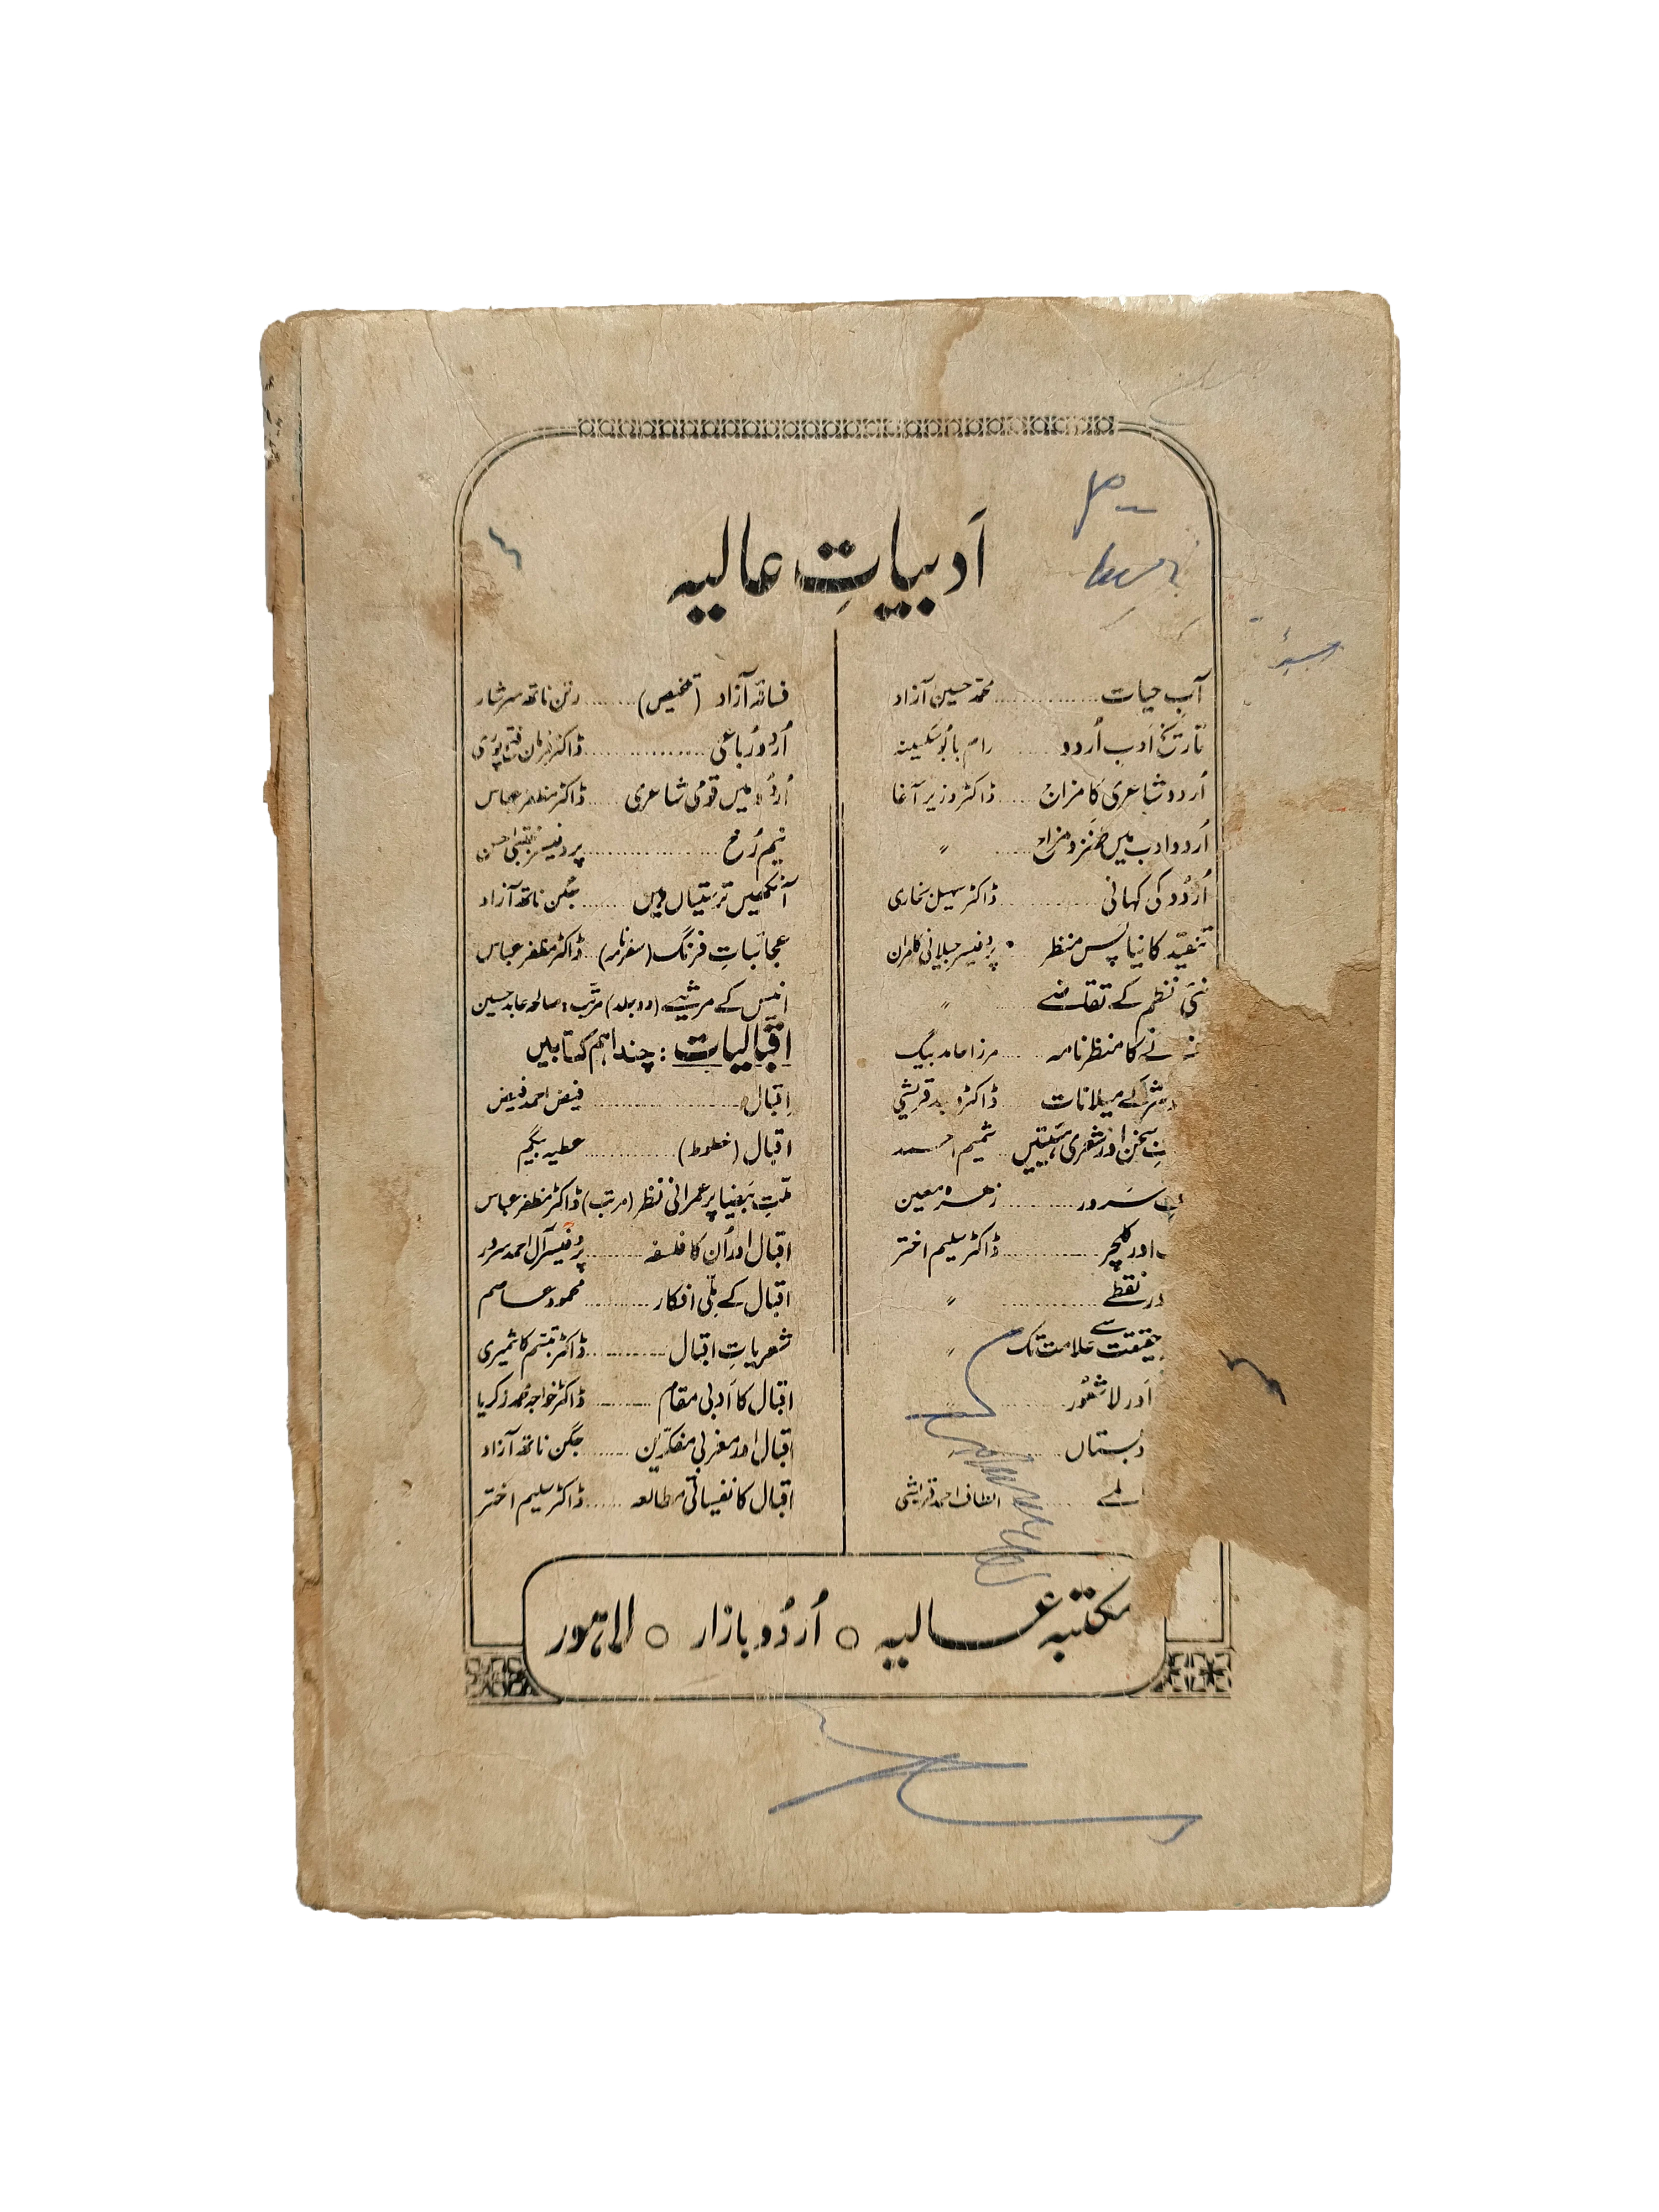 اَدبیاتِ عالیہ
آبِ حیات ............ محمد حسین آزاد
تاریخ اَدبِ اُردو ...... رام بابُو سکسینہ
اُردو شاعری کا مزاج .... ڈاکٹر وزیر آغا
اُردو ادب میں طنز و مزاح .... 〃
اُردُو کی کہانی .......... ڈاکٹر سہیل بخاری
تنقید کا نیا پس منظر . پروفیسر جیلانی کامران
نئی نظم کے تقاضے 〃
نے کا منظر نامہ .... مرزا حامد بیگ
کے میلانات .... ڈاکٹر وحید قریشی
سخن اور شعری ہیئتیں .. شمیم احمد
سَرور ......... زہرہ معین
اور کلچر .......... ڈاکٹر سلیم اختر
نقطے .......... 〃
حقیقت سے علامت تک 〃
اور لاشعُور ......... 〃
دبستاں .........
...... الطاف احمد قریشی
فسانۂ آزاد (تلخیص) ...... رتن ناتھ سرشار
اُردُو رُباعی ............ ڈاکٹر فرمان فتح پوری
اُردُو میں قومی شاعری .... ڈاکٹر مظفر عباس
نیم رُخ ............ پروفیسر مجتبیٰ حسین
آنکھیں ترستیاں ہیں ...... جگن ناتھ آزاد
عجائباتِ فرنگ (سفرنامہ) .. ڈاکٹر مظفر عباس
انیس کے مرثیے (دو جلد) مرتّب: صالحہ عابد حسین
اقبالیات : چند اہم کتابیں
اقبال .............. فیض احمد فیض
اقبال (خطوط) .......... عطیہ بیگم
ملّتِ بیضا پر عمرانی نظر (مرتب) ڈاکٹر مظفر عباس
اقبال اور اُن کا فلسفہ ...... پروفیسر آل احمد سرور
اقبال کے ملّی افکار ........ محمود عاصم
شعریاتِ اقبال .......... ڈاکٹر تبسّم کاشمیری
اقبال کا اَدبی مقام ...... ڈاکٹر خواجہ محمد زکریا
اقبال اور مغربی مفکّرین ...... جگن ناتھ آزاد
اقبال کا نفسیاتی مطالعہ ...... ڈاکٹر سلیم اختر
مکتبہ عالیہ ○ اُردُو بازار ○ لاہور